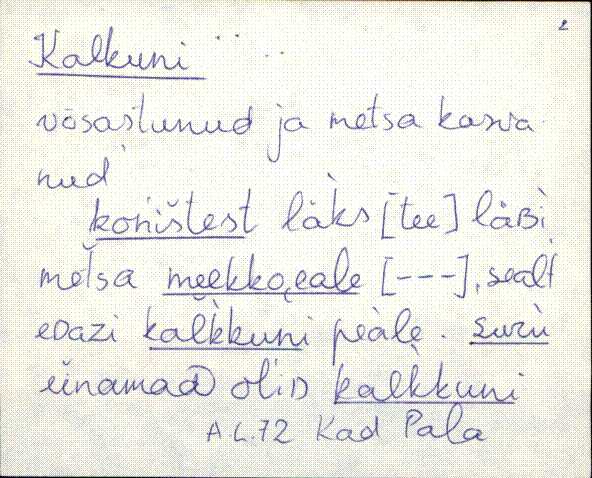 2
Kalkuni
võsastunud ja metsa kasva-
nud
koŕištest läks [tee] läʙi
metsa meekkoeale [---], sealt
edazi kaĺkkuni peàle. surù
einamaa oliᴅ kaĺkkuni
A.L.72 Kad Pala